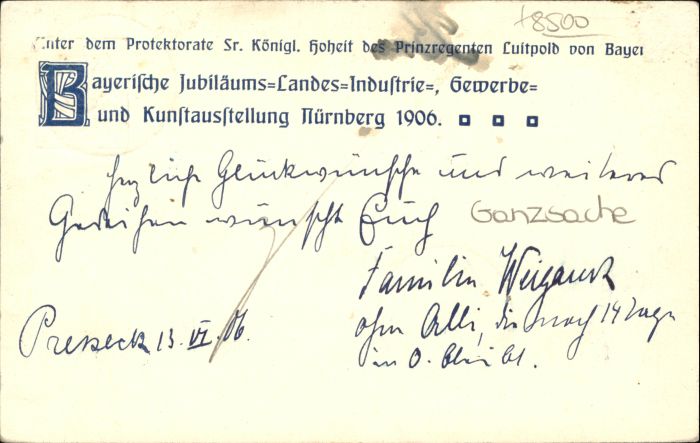 +8500
Unter dem Protektorate Sr. Königl. Hoheit des Prinzregenten Luitpold von Bayer
Bayerische Jubiläums=Landes=Industrie=, Gewerbe=
und Kunstausstellung Nürnberg 1906.
herzliche Glückwünsche und weiteres
Gedeihen wünscht Euch
Ganzsache
Familie
ohne Alli, die noch 14 Tage
in O. bleibt.
Presseck 13. VI. 06.